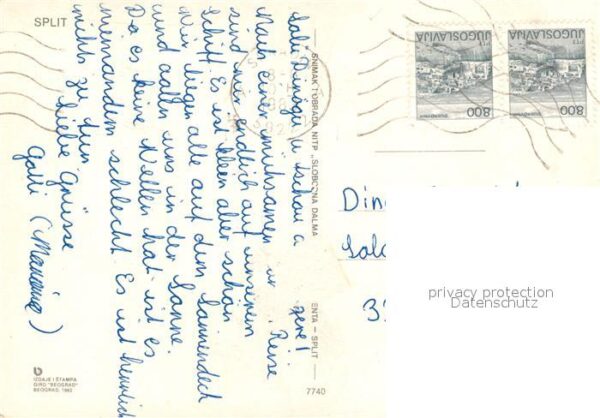 SPLIT
SNIMAK I OBRADA NITP „SLOBODNA DALMA
ENTA – SPLIT
Nach einer mühsamen
Reise
sind wir endlich auf unserem
Schiff. Es ist klein aber schön
Wir liegen alle auf dem Sonnendeck
und aalen uns in der Sonne.
Da es keine Wellen hat ist es
niemandem schlecht. Es ist herrlich
nichts zu tun
Liebe Grüsse
JUGOSLAVIJA
JUGOSLAVIJA
800
800
DUBROVNIK
DUBROVNIK
Din
privacy protection
Datenschutz
IZDAJE I ŠTAMPA
GIRO "BEOGRAD"
BEOGRAD,
7740